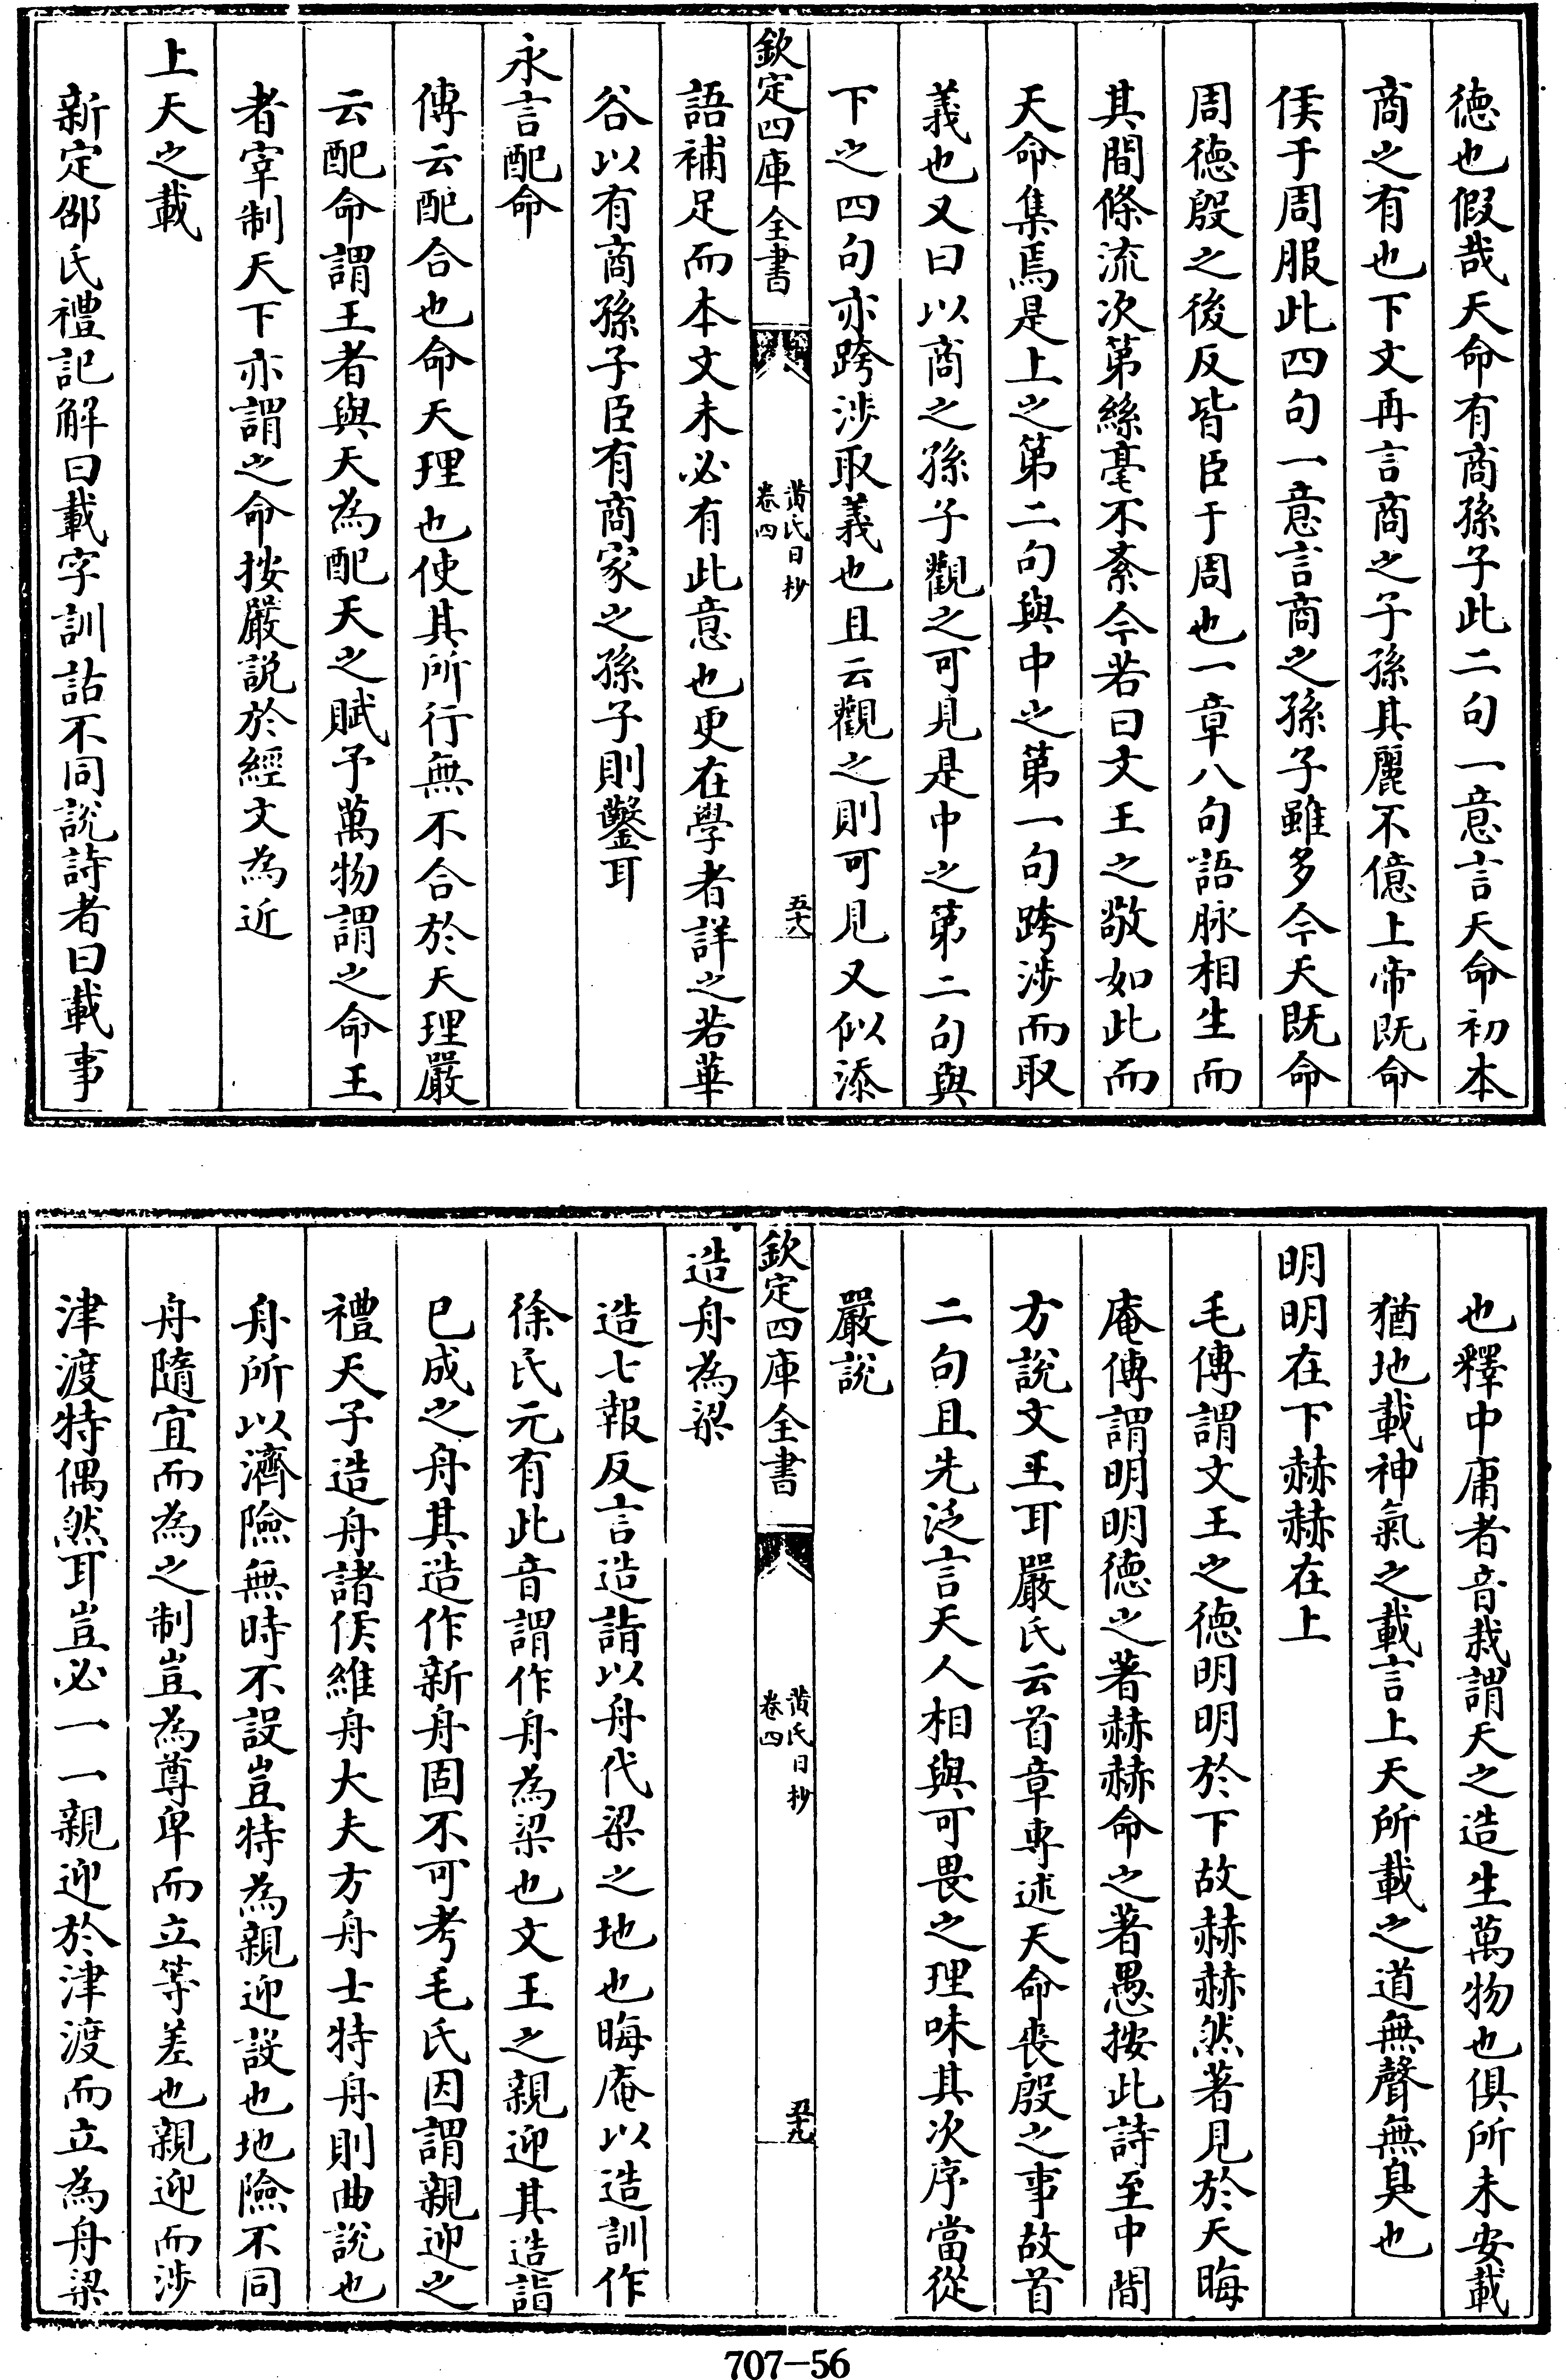 德也假哉天命有商孫子此二句一意言天命初本
商之有也下文再言商之子孫其麗不億上帝既命
侯于周服此四句一意言商之孫子雖多今天既命
周德殷之後反皆臣于周也一章八句語脉相生而
其間條流次第絲毫不紊今若曰文王之敬如此而
天命集焉是上之第二句與中之第一句跨涉而取
義也又曰以商之孫子觀之可見是中之第二句與
下之四句亦跨涉取義也且云觀之則可見又似添
欽定四庫全書
黄氏日抄
卷四
五十八
語補足而本文未必有此意也更在學者詳之若華
谷以有商孫子臣有商家之孫子則鑿耳
永言配命
傳云配合也命天理也使其所行無不合於天理嚴
云配命謂王者與天為配天之賦予萬物謂之命王
者宰制天下亦謂之命按嚴説於經文為近
上天之載
新定邵氏禮記解曰載字訓詁不同説詩者曰載事
也釋中庸者音栽謂天之造生萬物也俱所未安載
猶地載神氣之載言上天所載之道無聲無臭也
明明在下赫赫在上
毛傳謂文王之德明明於下故赫赫然著見於天晦
庵傳謂明明德之著赫赫命之著愚按此詩至中間
方説文王耳嚴氏云首章專述天命喪殷之事故首
二句且先泛言天人相與可畏之理味其次序當從
嚴説
欽定四庫全書
黄氏日抄
卷四
五十九
造舟為梁
造七報反言造詣以舟代梁之地也晦庵以造訓作
徐氏元有此音謂作舟為梁也文王之親迎其造詣
已成之舟其造作新舟固不可考毛氏因謂親迎之
禮天子造舟諸侯維舟大夫方舟士特舟則曲説也
舟所以濟險無時不設豈特為親迎設也地險不同
舟隨宜而為之制豈為尊卑而立等差也親迎而涉
津渡特偶然耳豈必一一親迎於津渡而立為舟梁
707-56